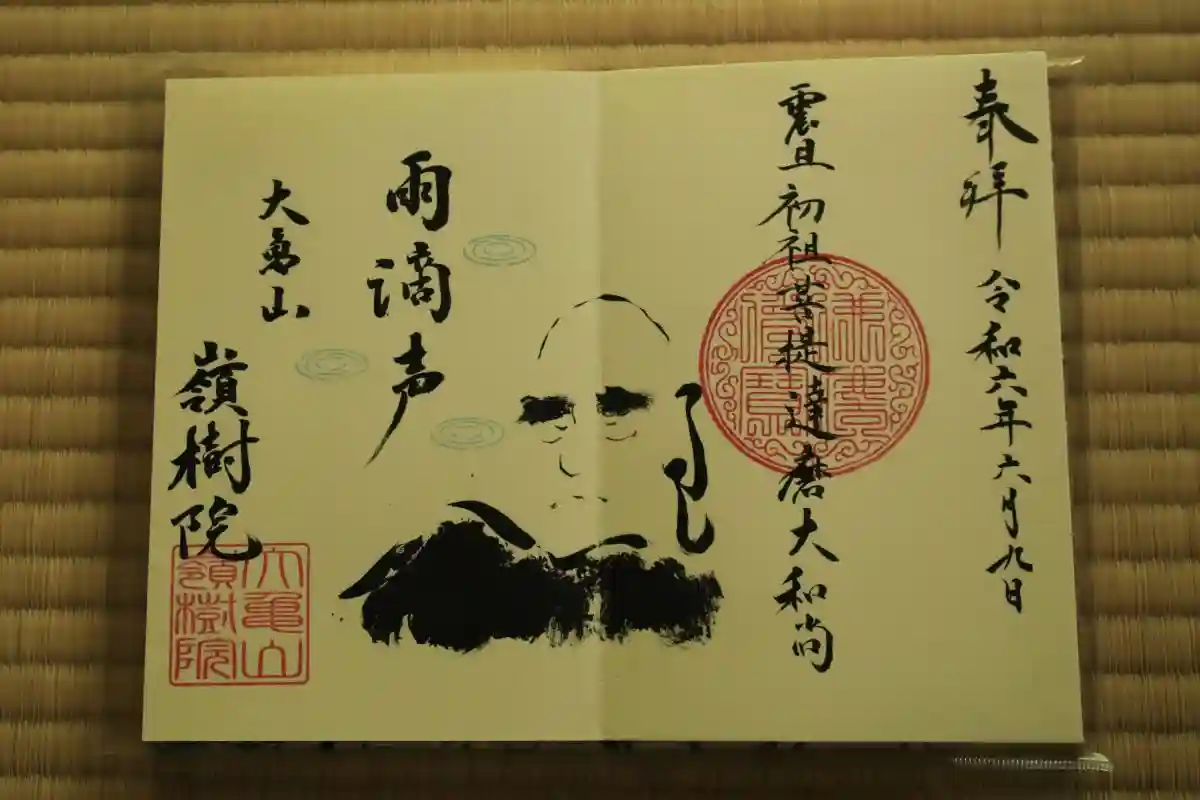 奉拝 令和六年六月九日
震旦初祖菩提達磨大和尚
雨滴声
大亀山
嶺樹院
大亀山
嶺樹院